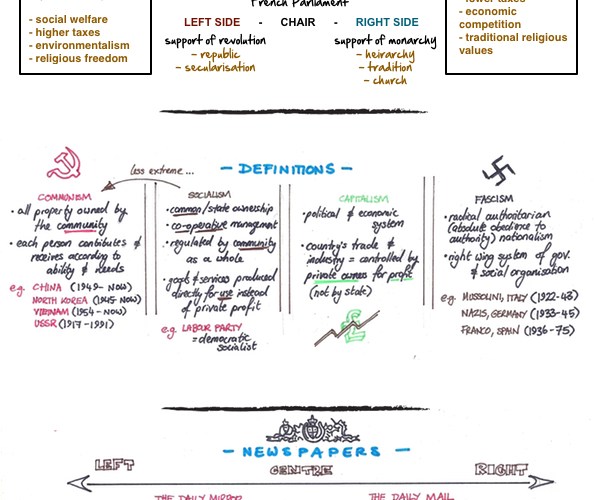 French Parliament
LEFT SIDE - CHAIR - RIGHT SIDE
- social welfare
- higher taxes
- environmentalism
- religious freedom
support of revolution
- republic
- secularisation
support of monarchy
- heirarchy
- tradition
- church
lower taxes
- economic
competition
- traditional religious
values
less extreme...
- DEFINITIONS -
COMMUNISM
• all property owned by
the community
• each person contibutes &
receives according to
ability & needs
e.g. CHINA (1949 - NOW)
NORTH KOREA (1945 - NOW)
VIETNAM (1954 - NOW)
USSR (1917 - 1991)
SOCIALISM
• common/state ownership
• co-operative management
• regulated by community
as a whole
• goods & services produced
directly for use instead
of private profit
e.g. LABOUR PARTY
= democratic
socialist
CAPITALISM
• political & economic
system
• country's trade &
industry = controlled by
private owners for profit
(not by state)
£
FASCISM
• radical authoritarian
(absolute obedience to
authority) nationalism
• right wing system of gov.
& social organisation
e.g. MUSSOLINI, ITALY (1922-43)
NAZIS, GERMANY (1933-45)
FRANCO, SPAIN (1936-75)
- NEWSPAPERS -
LEFT CENTRE RIGHT
THE DAILY MIRROR THE DAILY MAIL